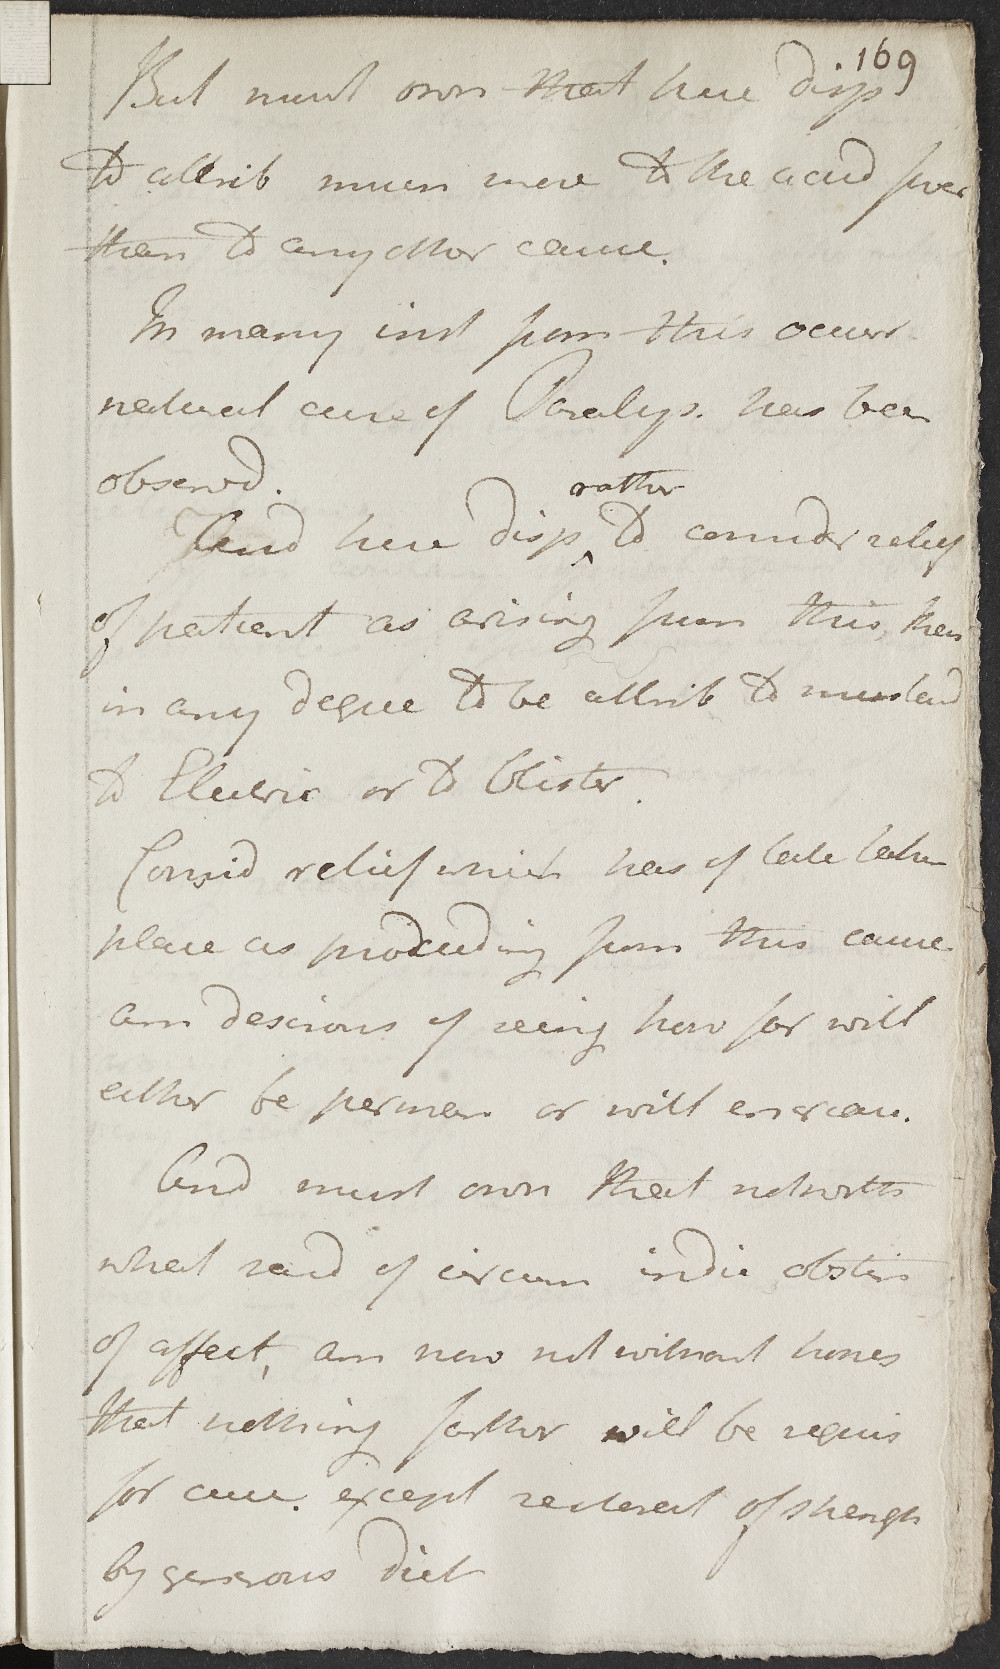 169
But must own that here disp
to attrib much more to the acced fever
than to any other cause.
In many inst from this occurr
natural cure of Paralys. has been
observd.
rather
And here disp ^ to consider relief
of patient as arising from this, than
in any degree to be attrib to mustard
to Electric or to blister.
Consid relief which has of late taken
place as proceeding from this cause
am desirous of seeing how far will
either be perman or will encreas.
And must own that notwith
what said of circum indic obstin
of affect, am now not without hopes
that nothing farther will be requis
for cure. except restorat of strength
by generous diet